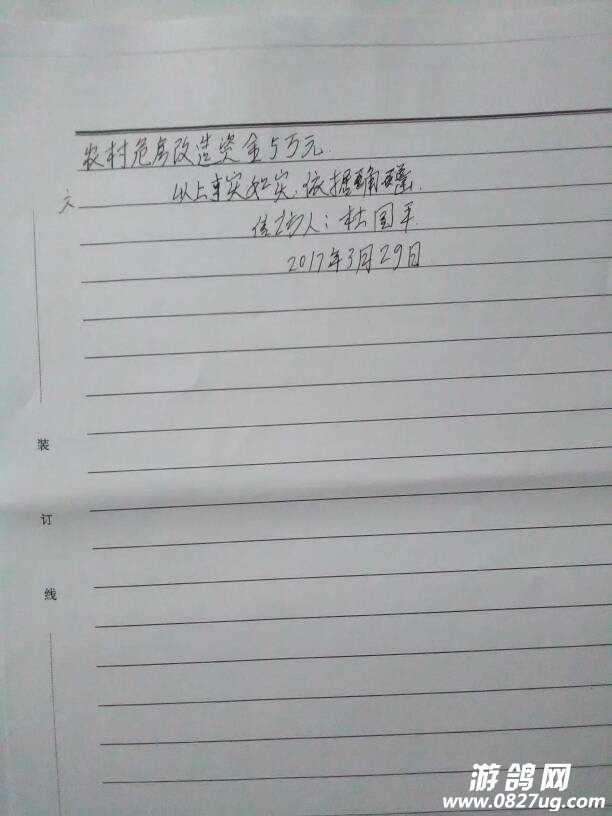 农村危房改造资金5万元.
以上事实如实,依据确凿.
信访人:杜国平
2017年3月29日
装
订
线
游鸽网
www.0827ug.com